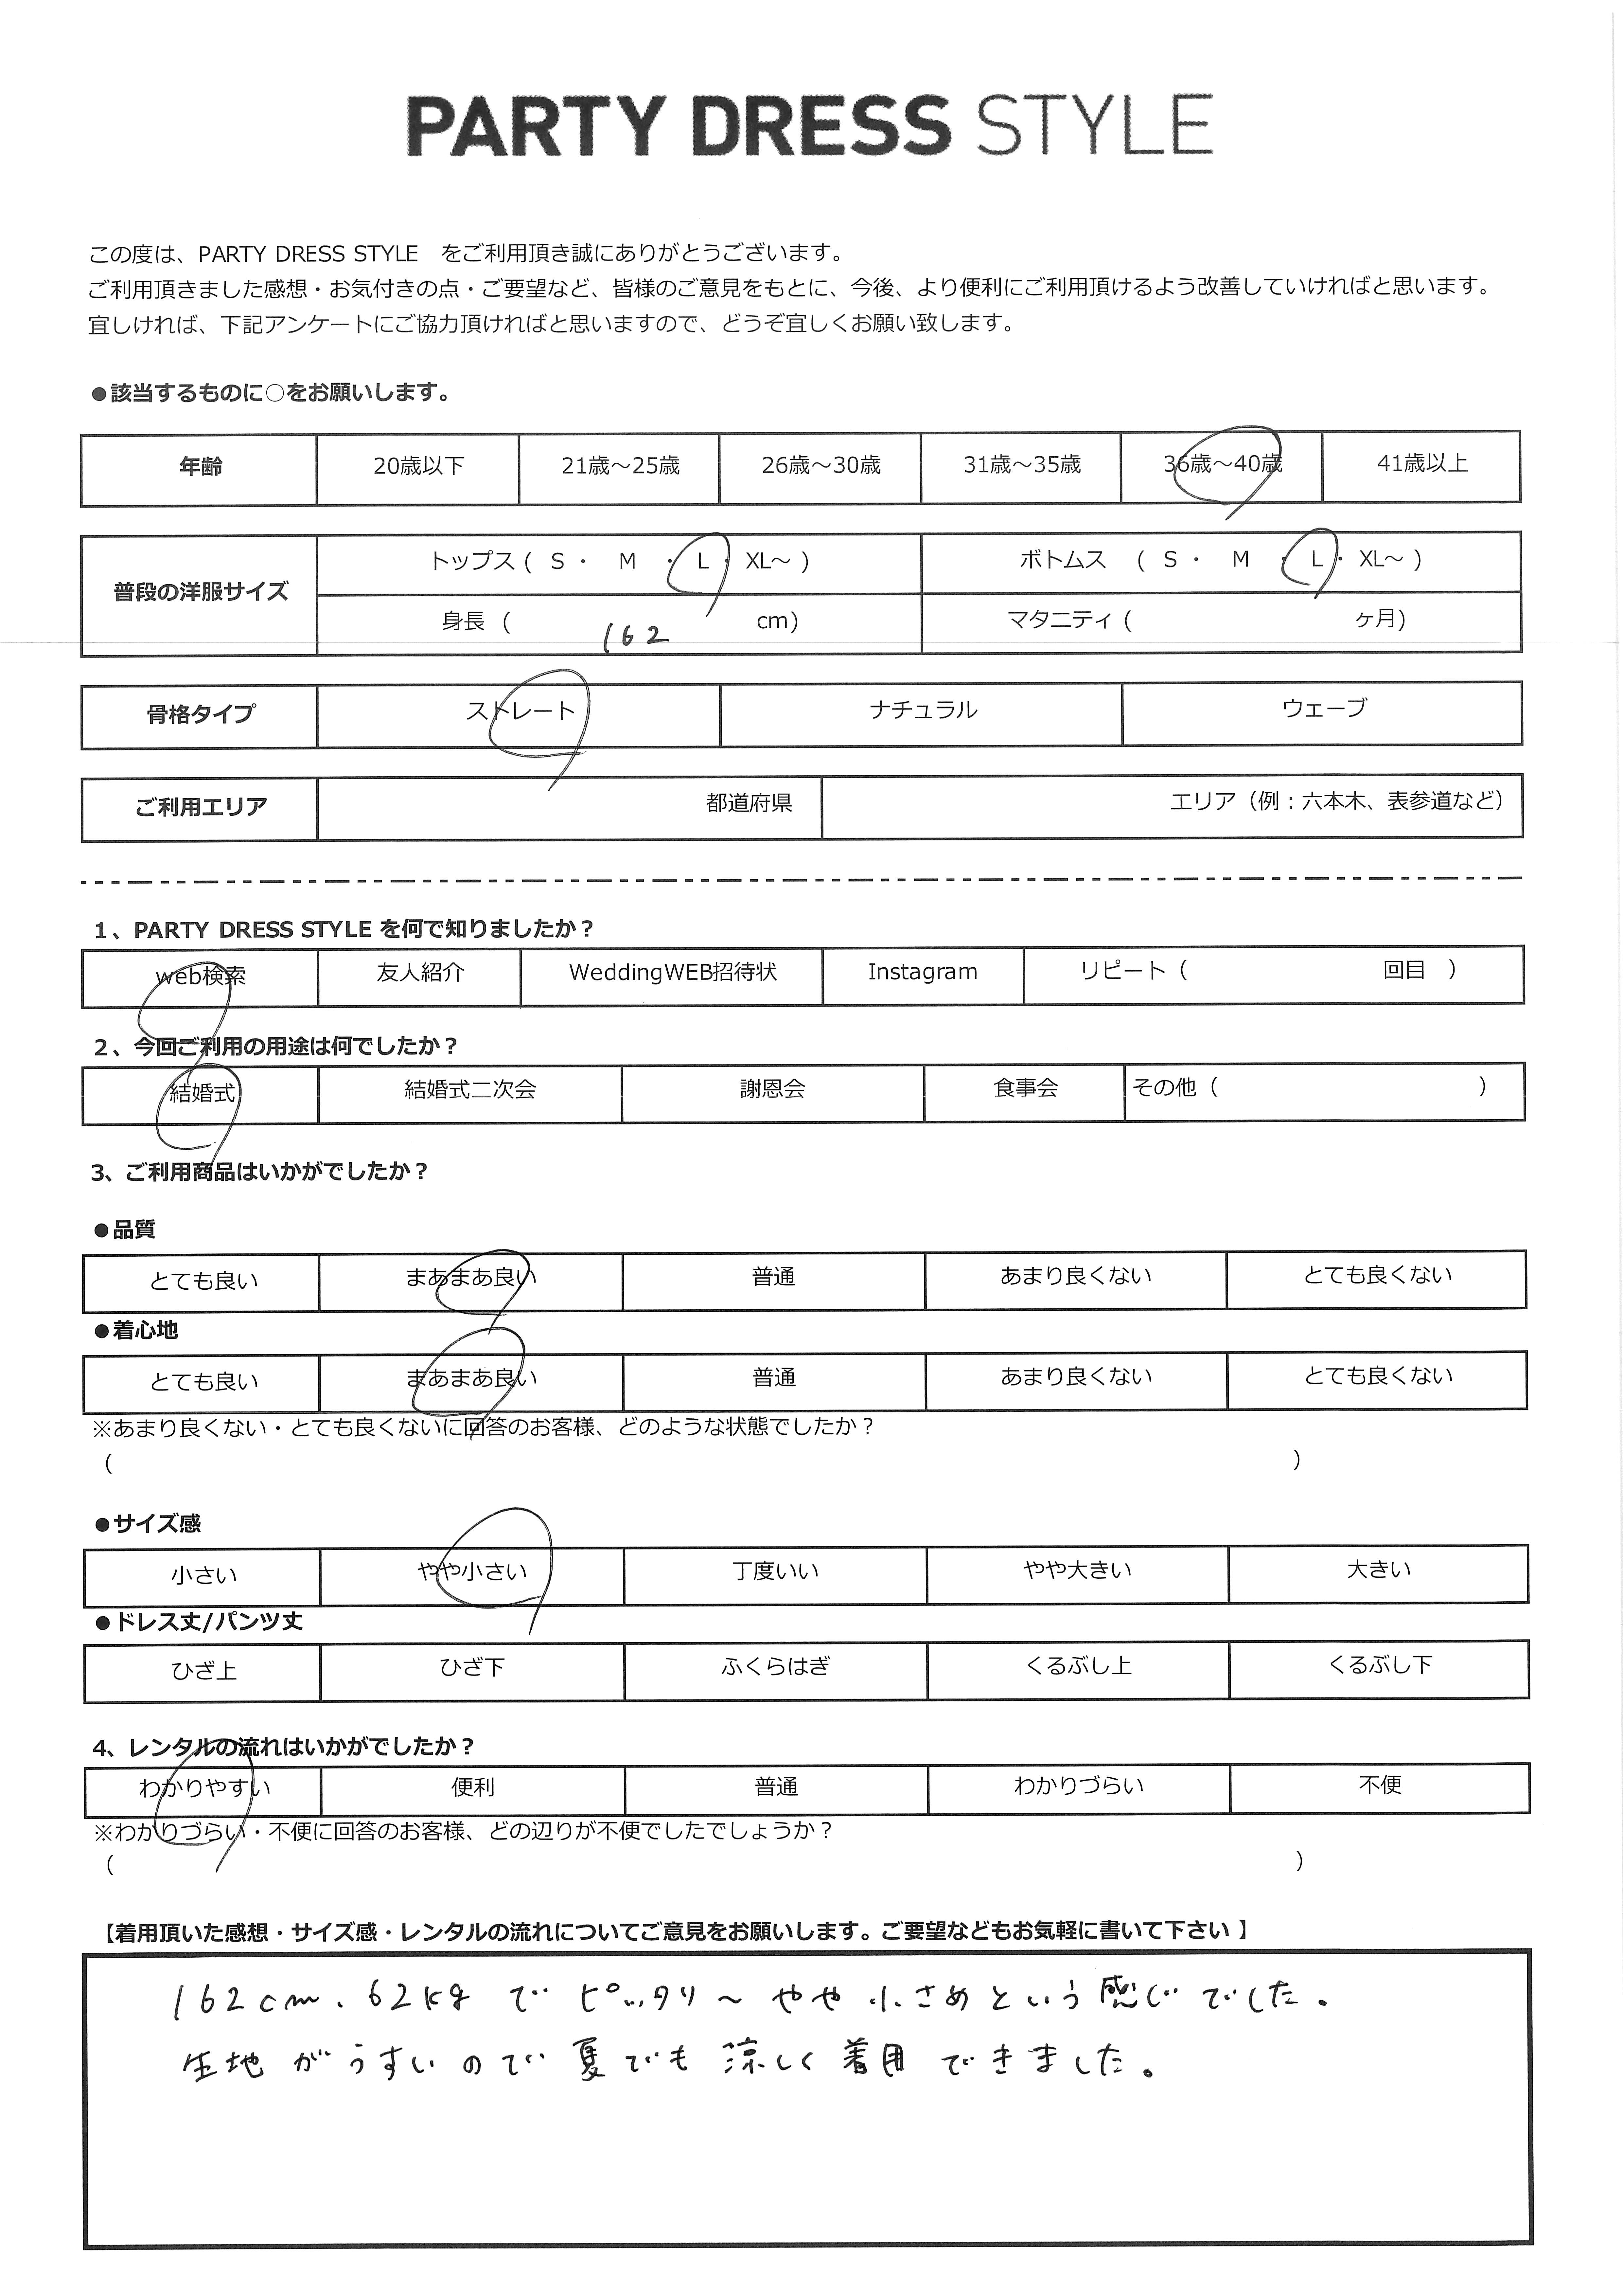 PARTY DRESS STYLE
この度は、PARTY DRESS STYLE　をご利用頂き誠にありがとうございます。
ご利用頂きました感想・お気付きの点・ご要望など、皆様のご意見をもとに、今後、より便利にご利用頂けるよう改善していければと思います。
宜しければ、下記アンケートにご協力頂ければと思いますので、どうぞ宜しくお願い致します。
●該当するものに○をお願いします。
年齢 20歳以下 21歳～25歳 26歳～30歳 31歳～35歳 36歳～40歳 41歳以上
普段の洋服サイズ
トップス ( S ・ M ・ L ・ XL～ ) ボトムス ( S ・ M ・ L ・ XL～ )
身長 ( 162 cm) マタニティ ( ヶ月)
骨格タイプ ストレート ナチュラル ウェーブ
ご利用エリア 都道府県 エリア（例：六本木、表参道など）
1、PARTY DRESS STYLE を何で知りましたか？
web検索 友人紹介 WeddingWEB招待状 Instagram リピート（ 回目 ）
2、今回ご利用の用途は何でしたか？
結婚式 結婚式二次会 謝恩会 食事会 その他（ ）
3、ご利用商品はいかがでしたか？
●品質
とても良い まあまあ良い 普通 あまり良くない とても良くない
●着心地
とても良い まあまあ良い 普通 あまり良くない とても良くない
※あまり良くない・とても良くないに回答のお客様、どのような状態でしたか？
（ ）
●サイズ感
小さい やや小さい 丁度いい やや大きい 大きい
●ドレス丈/パンツ丈
ひざ上 ひざ下 ふくらはぎ くるぶし上 くるぶし下
4、レンタルの流れはいかがでしたか？
わかりやすい 便利 普通 わかりづらい 不便
※わかりづらい・不便に回答のお客様、どの辺りが不便でしたでしょうか？
（ ）
【着用頂いた感想・サイズ感・レンタルの流れについてご意見をお願いします。ご要望などもお気軽に書いて下さい 】
162cm、62kgでピッタリ～やや小さめという感じでした。
生地がうすいので夏でも涼しく着用できました。